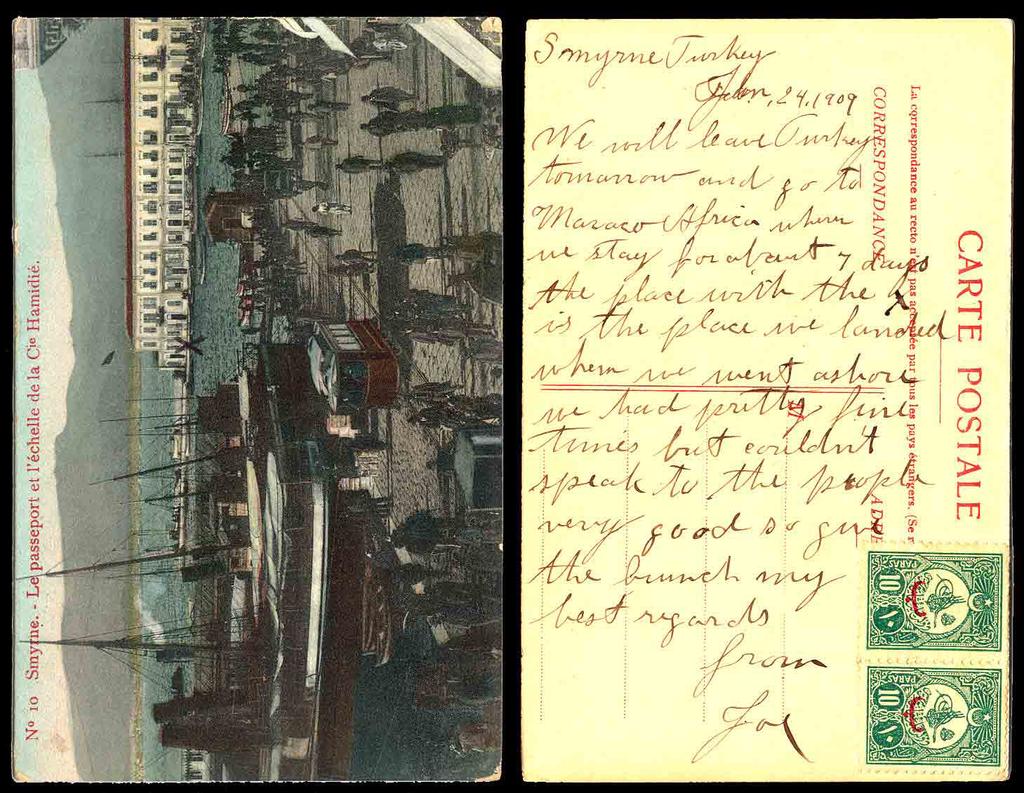 Nº 10 Smyrne. - Le passeport et l'échelle de la Cie Hamidié.
Smyrne Turkey
Jan, 24, 1909
We will leave Turkey
tomarrow and go to
Maraco Africa where
we stay for about 7 days
the place with the X
is the place we landed
when we went ashore
we had pretty fine
times but couldn't
speak to the people
very good so give
the bunch my
best regards
from
Joe
CARTE POSTALE
La correspondance au recto n'est pas acceptée par tous les pays étrangers. (Se r
CORRESPONDANCE
ADRE
10 PARAS ١٠
10 PARAS ١٠